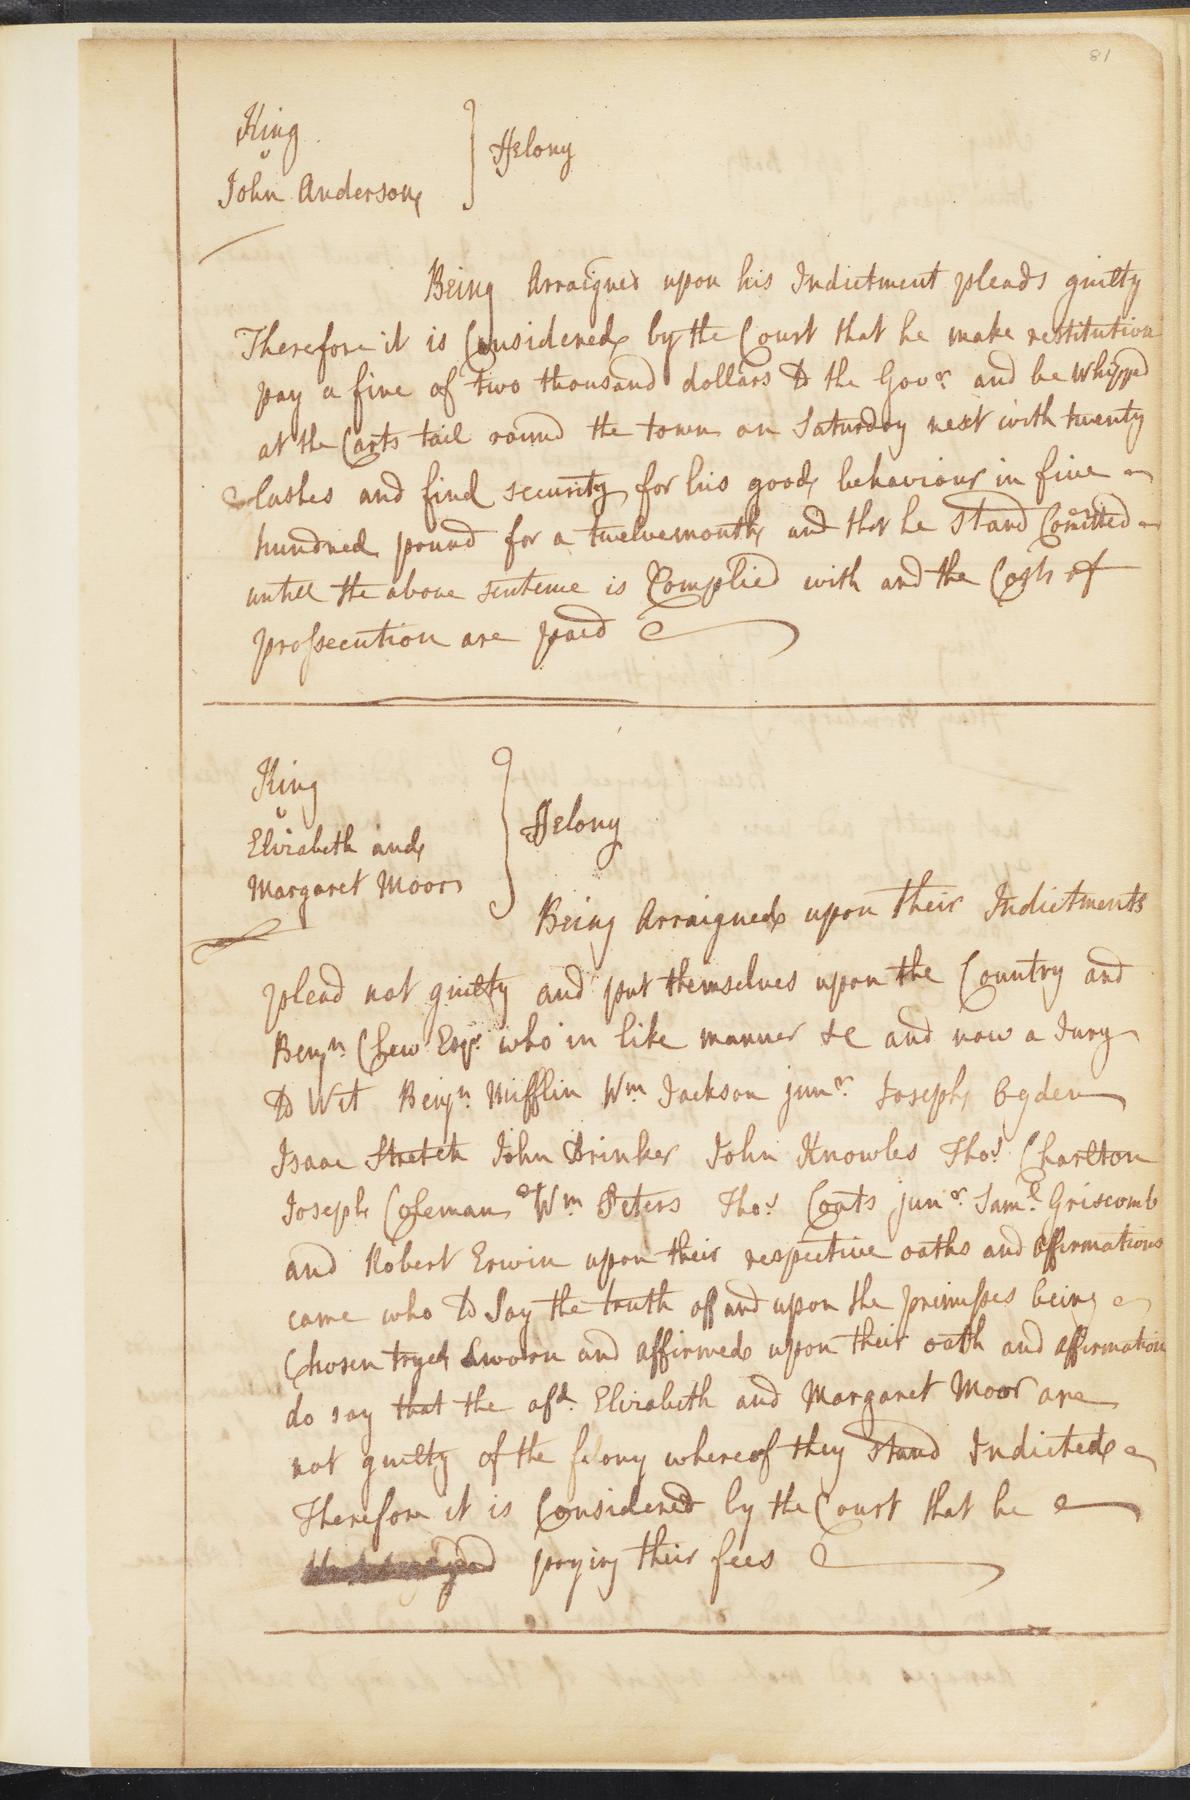 81
King
v
John Anderson
Felony
Being Arraigned upon his Indictment pleads guilty
Therefore it is Considered by the Court that he make restitution
pay a fine of two thousand dollars to the Govr. and be whipped
at the Carts tail round the town on Saturday next with twenty
lashes and find security for his good behaviour in five
hundred pound for a twelvemonth and that he stand Comitted
untill the above sentence is Complied with and the Costs of
prossecution are paid
King
v
Elizabeth and
Margaret Moor
Felony
Being Arraigned upon their Indictments
plead not guilty and put themselves upon the Country and
Benjn. Chew Esqr. who in like manner &c and now a Jury
to Wit Benjn. Mifflin Wm Jackson junr. Joseph Ogden
Isaac Stretch John Drinker John Knowles Thos. Charlton
Joseph Coleman Wm Peters Thos. Coats junr. Saml. Griscomb
and Robert Erwin upon their respective oaths and affirmations
came who to Say the truth off and upon the premisses being
Chosen tryed Sworn and affirmed upon their oath and affirmation
do say that the afd. Elizabeth and Margaret Moor are
not guilty of the felony whereof they stand Indicted
Therefore it is Considered by the Court that he
paying their fees